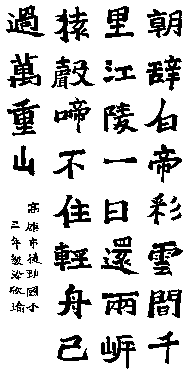 朝辭白帝彩雲間千
里江陵一日還兩岸
猿聲啼不住輕舟已
過萬重山
高雄市後勁國小
三年級